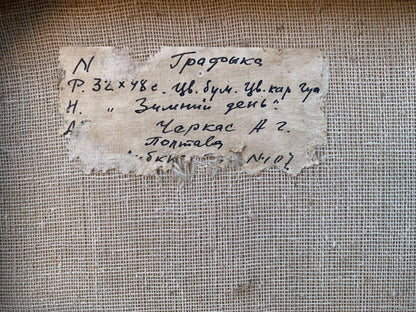 N Графика
Р. 32×48 с. Цв. бум. Цв. кар гуа
Н. "Зимний день"
А Черкас А г.
Полтава
№107